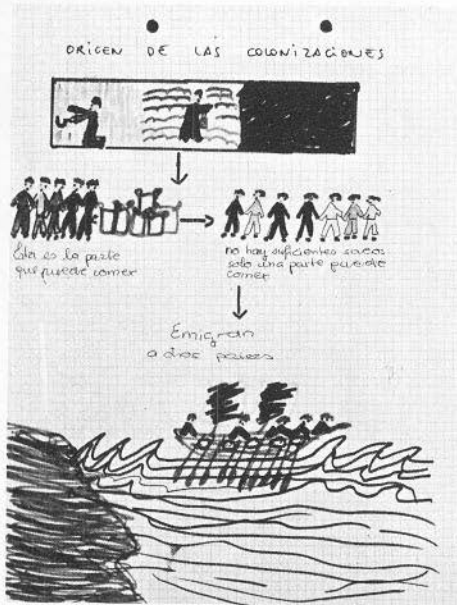 ORIGEN DE LAS COLONIZACIONES
Esta es la parte
que puede comer
no hay suficientes sacos
solo una parte puede
comer
Emigran
a otros paises